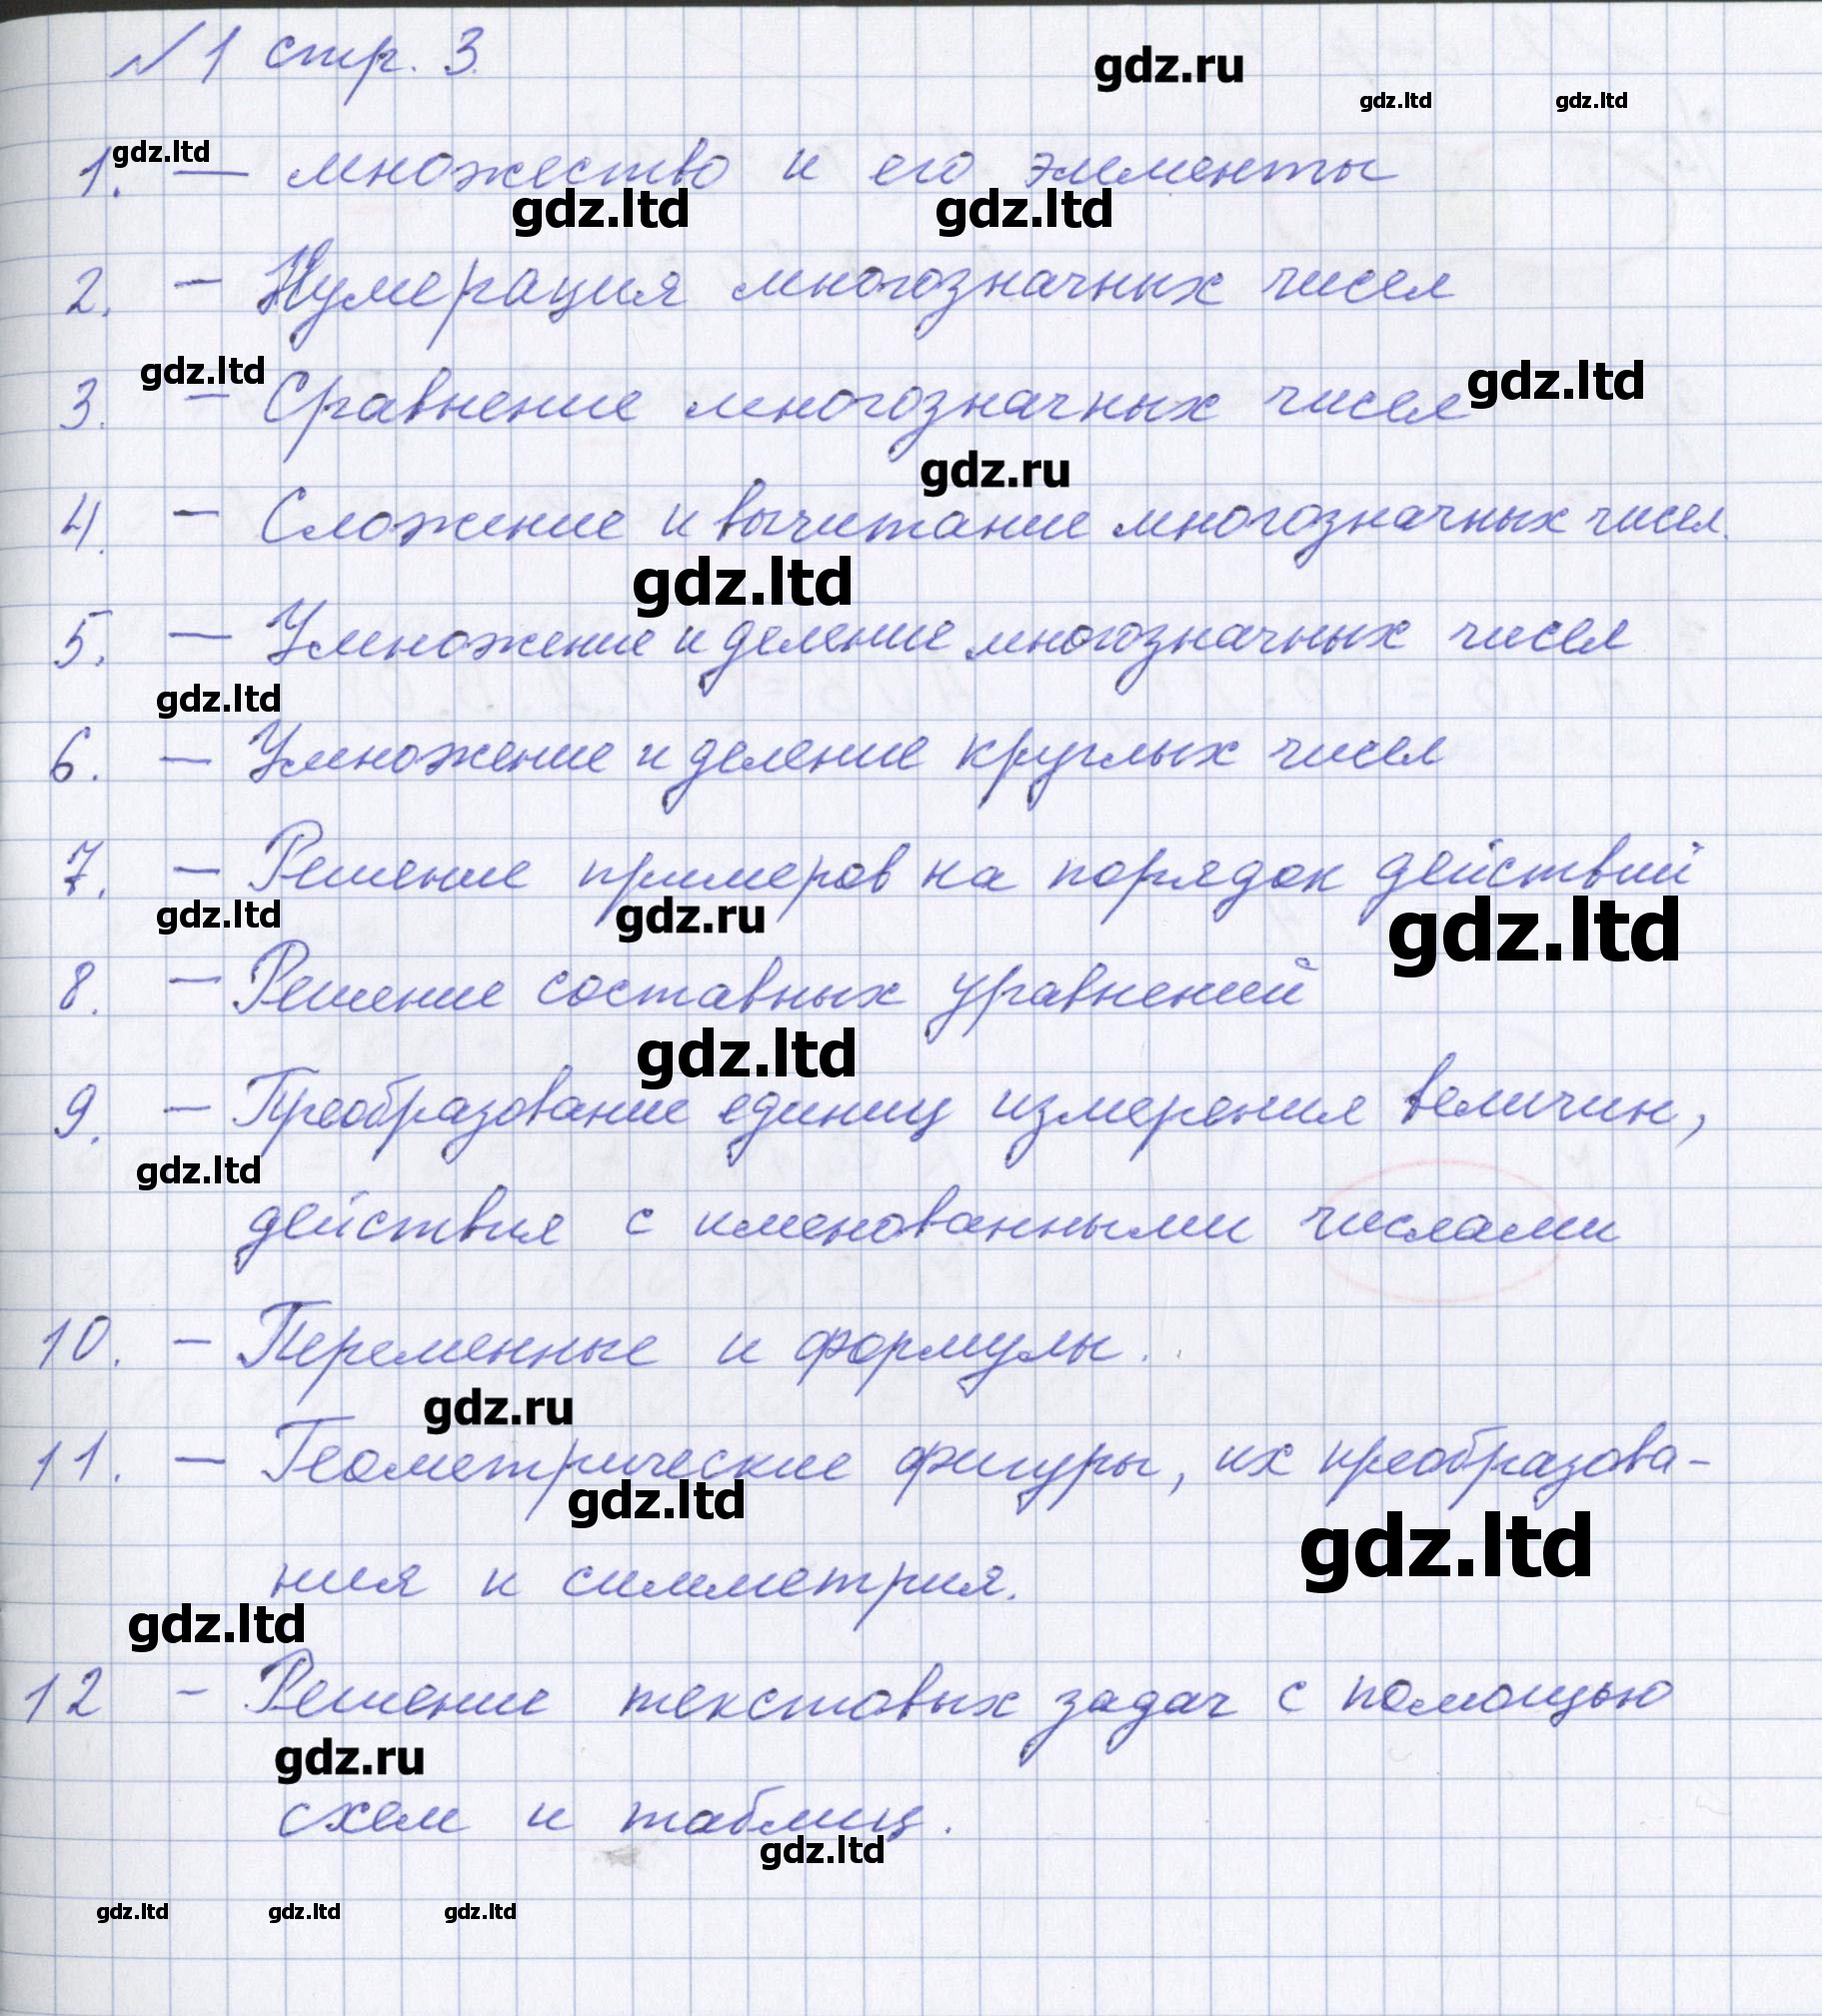 №1 стр. 3.
gdz.ru
gdz.ltd gdz.ltd
gdz.ltd
1. — множество и его элементы
gdz.ltd gdz.ltd
2. — Нумерация многозначных чисел
gdz.ltd gdz.ltd
3. — Сравнение многозначных чисел
gdz.ru
4. — Сложение и вычитание многозначных чисел.
gdz.ltd
5. — Умножение и деление многозначных чисел
gdz.ltd
6. — Умножение и деление круглых чисел
7. — Решение примеров на порядок действий
gdz.ltd gdz.ru gdz.ltd
8. — Решение составных уравнений
gdz.ltd
9. — Преобразование единиц измерения величин,
gdz.ltd
действия с именованными числами
10. — Переменные и формулы.
gdz.ru
11. — Геометрические фигуры, их преобразова-
gdz.ltd gdz.ltd
ния и симметрия.
gdz.ltd
12 - Решение текстовых задач с помощью
gdz.ru
схем и таблиц.
gdz.ltd
gdz.ltd gdz.ltd gdz.ltd